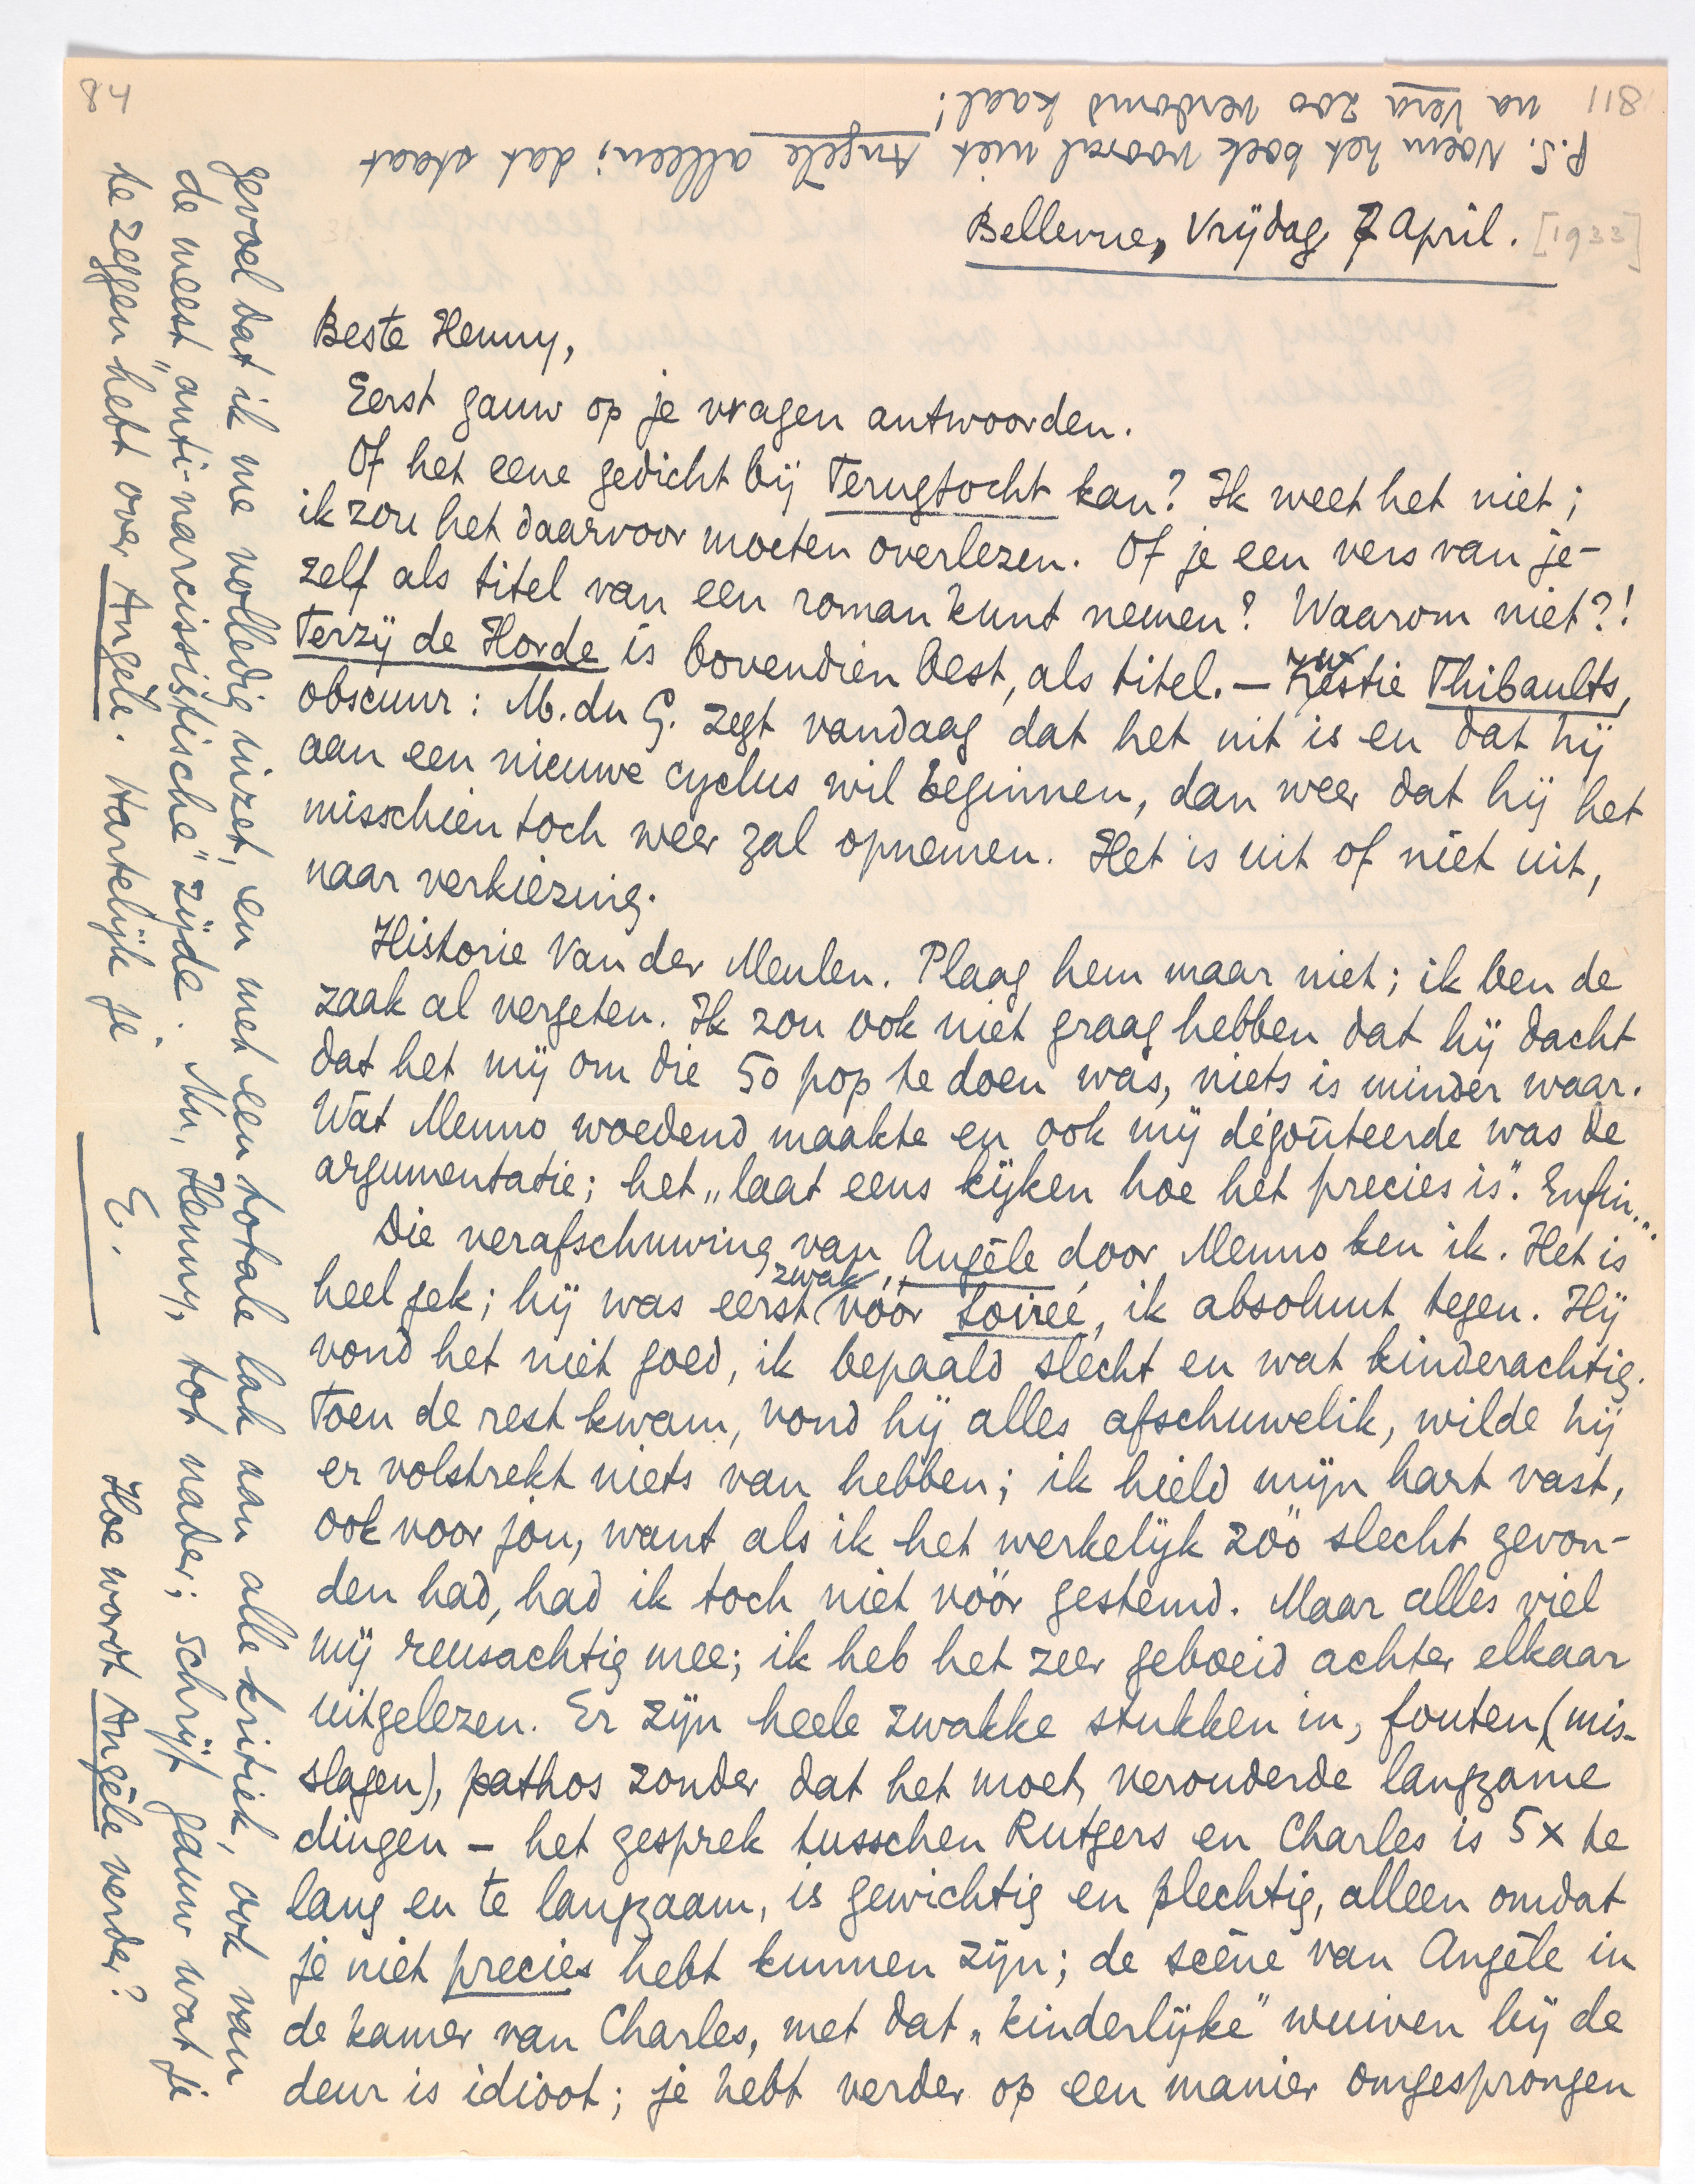 84
118
P.S. Noem het boek vooral niet Angèle alleen; dat staat
na Vera zoo verdomd kaal!
Bellevue, Vrijdag 7 April. [1933]
Beste Henny,
Eerst gauw op je vragen antwoorden.
Of het eene gedicht bij Terugtocht kan? Ik weet het niet;
ik zou het daarvoor moeten overlezen. Of je een vers van je-
zelf als titel van een roman kunt nemen? Waarom niet?!
Terzij de Horde is bovendien best, als titel. — Kwestie Thibaults,
obscuur: M. du G. zegt vandaag dat het uit is en dat hij
aan een nieuwe cyclus wil beginnen, dan weer dat hij het
misschien toch weer zal opnemen. Het is uit of niet uit,
naar verkiezing.
Historie Van der Meulen. Plaag hem maar niet; ik ben de
zaak al vergeten. Ik zou ook niet graag hebben dat hij dacht
dat het mij om die 50 pop te doen was, niets is minder waar.
Wat Menno woedend maakte en ook mij dégoûteerde was de
argumentatie; het „laat eens kijken hoe het precies is". Enfin...
Die verafschuwing van Angèle door Menno ken ik. Het is
heel gek; hij was eerst zwak vóór Soirée, ik absoluut tegen. Hij
vond het niet goed, ik bepaald slecht en wat kinderachtig.
Toen de rest kwam, vond hij alles afschuwelik, wilde hij
er volstrekt niets van hebben; ik hield mijn hart vast,
ook voor jou, want als ik het werkelijk zóó slecht gevon-
den had, had ik toch niet vóór gestemd. Maar alles viel
mij reusachtig mee; ik heb het zeer geboeid achter elkaar
uitgelezen. Er zijn heele zwakke stukken in, fouten (mis-
slagen), pathos zonder dat het moet, verouderde langzame
dingen — het gesprek tusschen Rutgers en Charles is 5 x te
lang en te langzaam, is gewichtig en plechtig, alleen omdat
je niet precies hebt kunnen zijn; de scène van Angèle in
de kamer van Charles, met dat „kinderlijke" wuiven bij de
deur is idioot; je hebt verder op een manier omgesprongen
gevoel dat ik me volledig inzet, en met een totale lak aan alle kritiek, ook van
de meest „anti-narcissistische" zijde. Nu, Henny, tot nader; schrijf gauw wat je
te zeggen hebt over Angèle. Hartelijk je E. Hoe wordt Angèle verder?